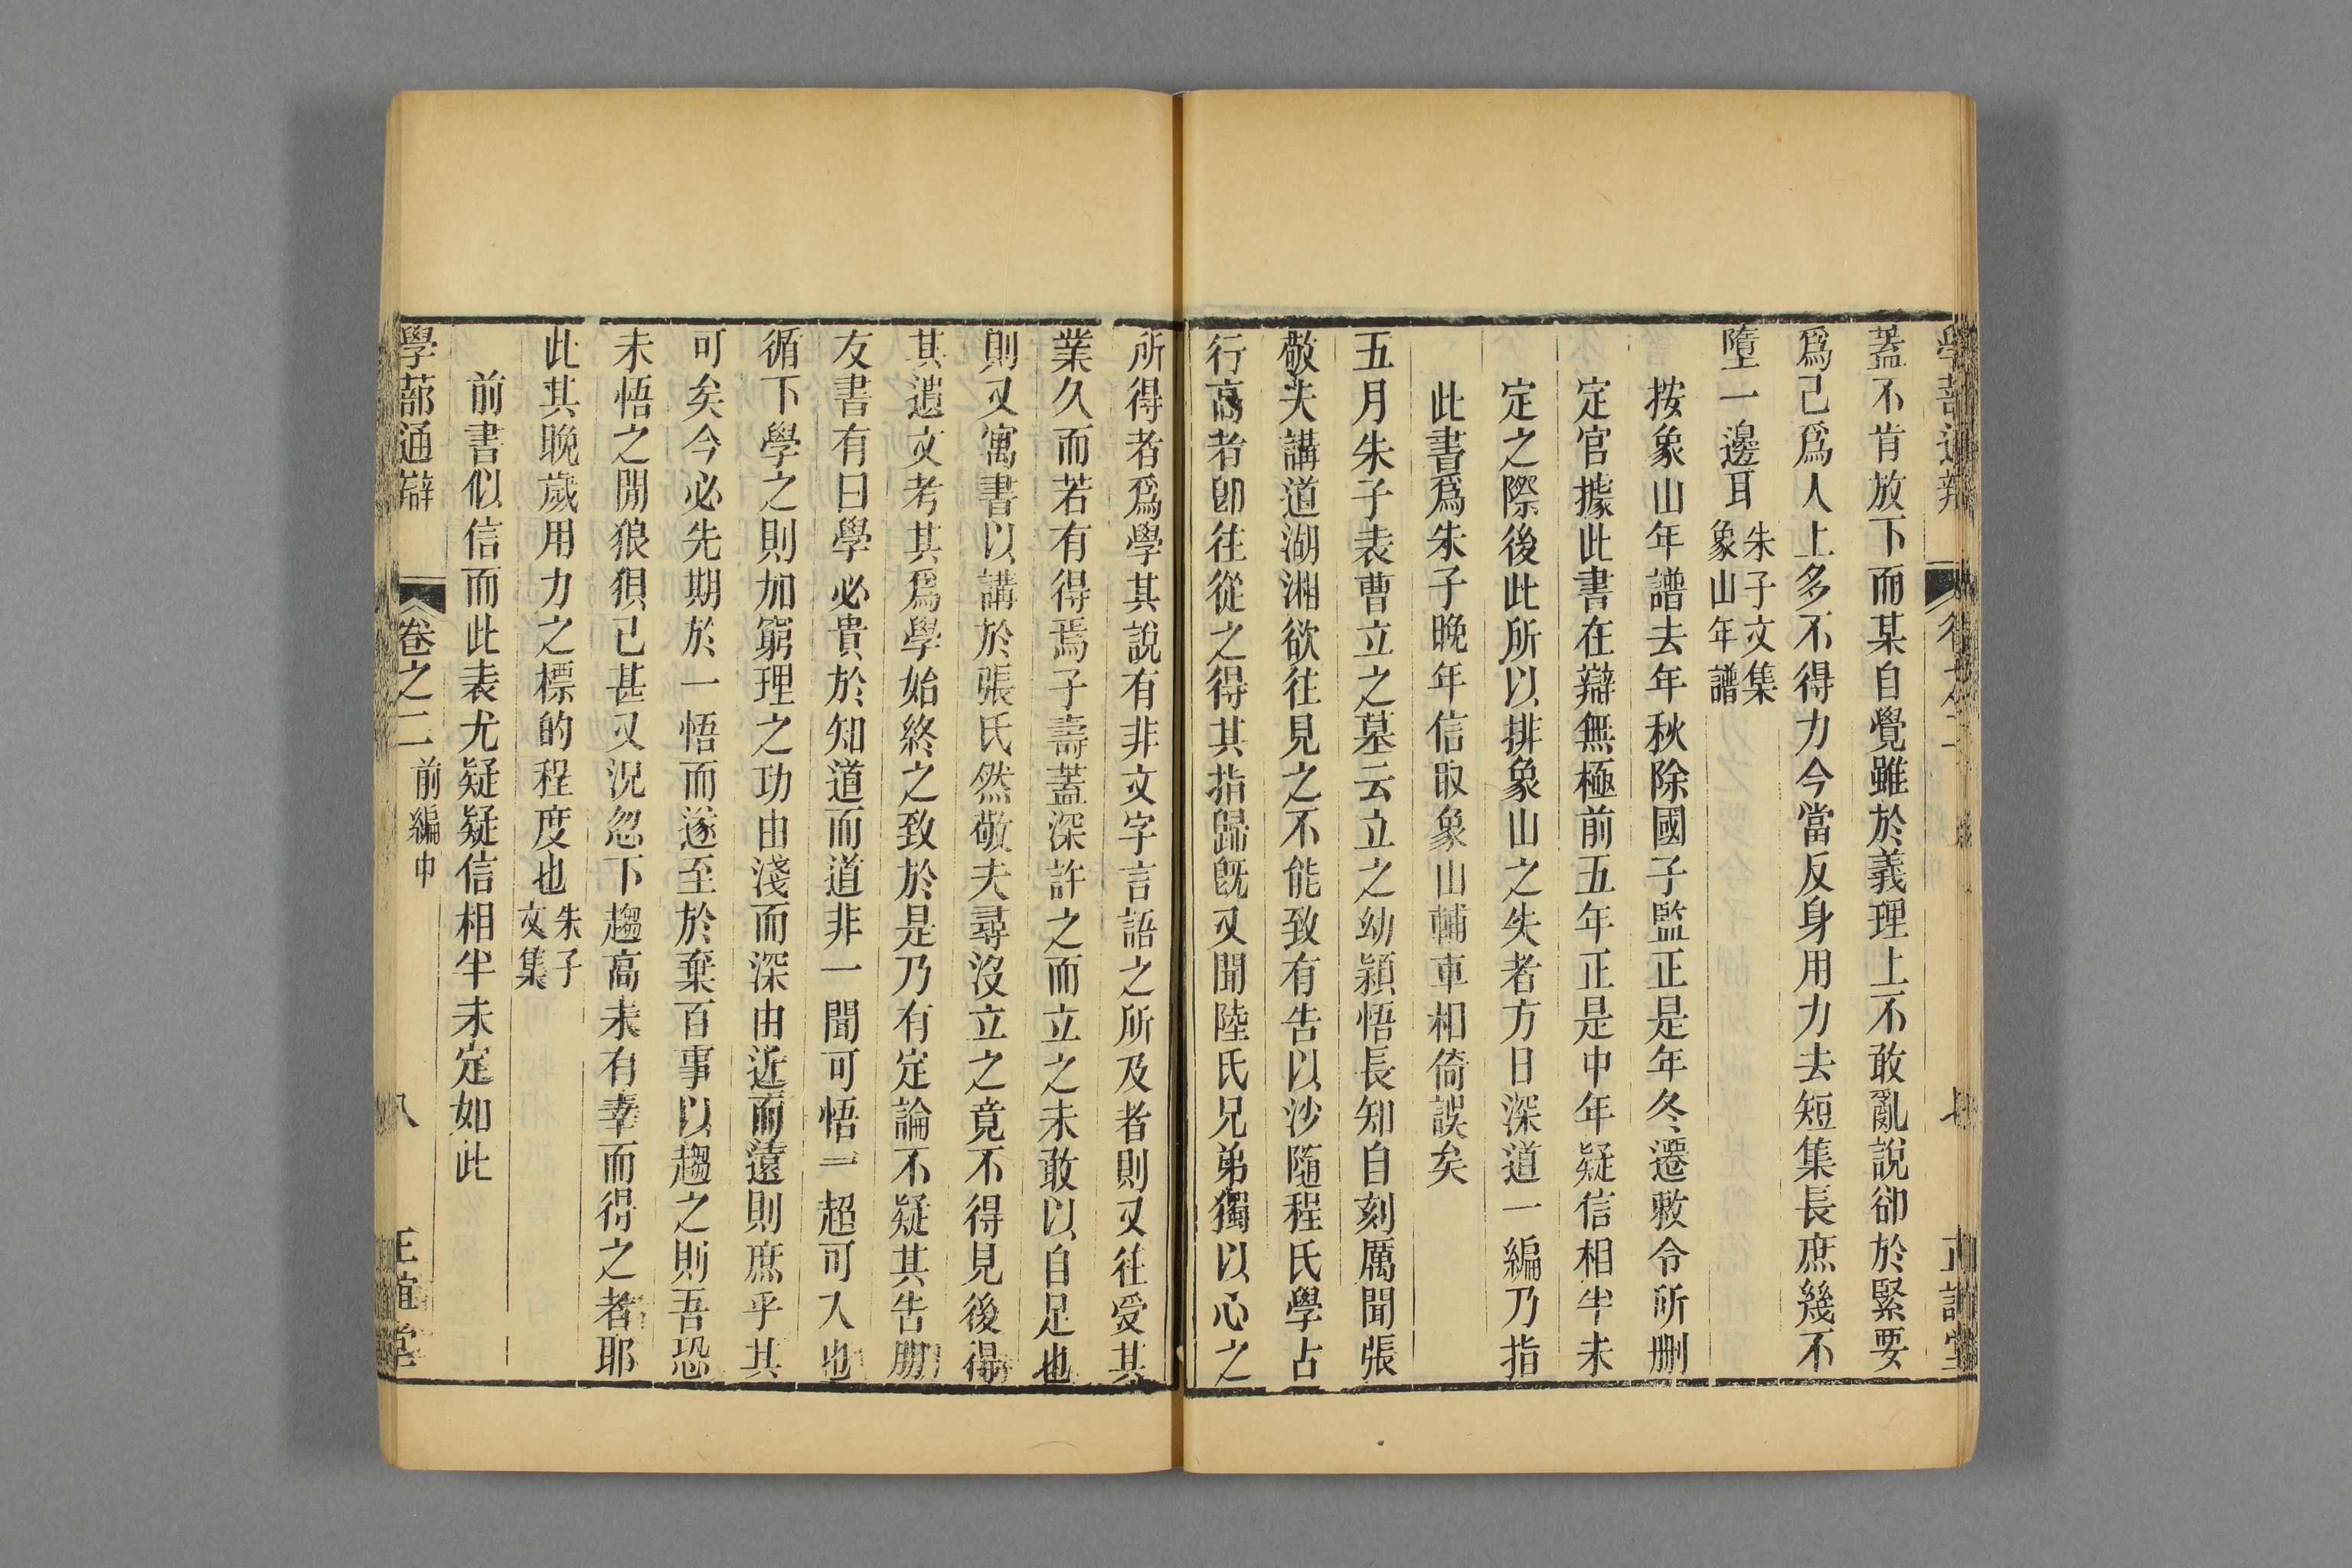 蓋不肯放下而某自覺雖於義理上不敢亂說卻於緊要
爲己爲人上多不得力今當反身用力去短集長庶幾不
墮一邊耳
朱子文集
象山年譜
按象山年譜去年秋除國子監正是年冬遷敕令所删
定官據此書在辯無極前五年正是中年疑信相半未
定之際後此所以排象山之失者方日深道一編乃指
此書爲朱子晚年信取象山輔車相倚誤矣
五月朱子表曹立之墓云立之幼穎悟長知自刻厲聞張
敬夫講道湖湘欲往見之不能致有告以沙隨程氏學占
行高者卽往從之得其指歸旣又聞陸氏兄弟獨以心之
所得者爲學其說有非文字言語之所及者則又往受其
業久而若有得焉子壽蓋深許之而立之未敢以自足也
則又寓書以講於張氏然敬夫尋沒立之竟不得見後得
其遺文考其爲學始終之致於是乃有定論不疑其告朋
友書有曰學必貴於知道而道非一聞可悟一超可入也
循下學之則加窮理之功由淺而深由近而遠則庶乎其
可矣今必先期於一悟而遂至於棄百事以趨之則吾恐
未悟之閒狼狽已甚又況忽下趨高未有幸而得之者耶
此其晚歲用力之標的程度也
朱子
文集
前書似信而此表尤疑疑信相半未定如此
學蔀通辯
卷之二
前編中
八
正誼堂